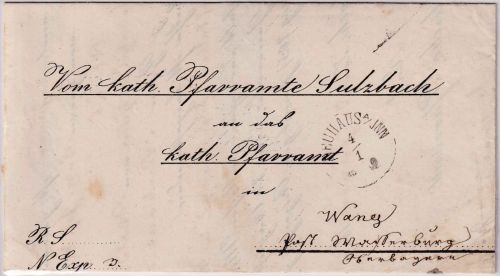 Vom kath. Pfarramte Sulzbach
an das
kath. Pfarramt
NEUHAUS a/ INN
4
1
in
Wang
Post Wasserburg
Oberbayern
R. S.
N. Exp. 3.